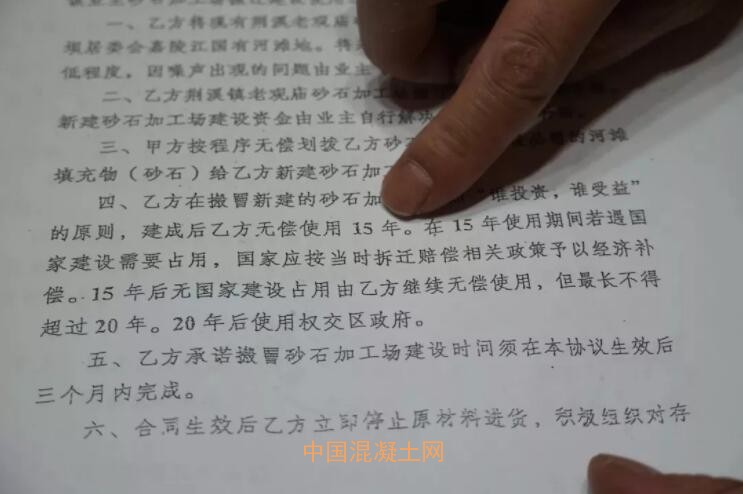 一、乙方将现有荆溪老观庙砂
坝居委会嘉陵江国有河滩地。将
低程度，因噪声出现的问题由业主
二、乙方荆溪镇老观庙砂石加工场
新建砂石加工场建设资金由业主自行解决
三、甲方按程序无偿划拨乙方砂 的河滩
填充物（砂石）给乙方新建砂石加工
四、乙方在搬冒新建的砂石加 “谁投资，谁受益”
的原则，建成后乙方无偿使用 15 年。在 15 年使用期间若遇国
家建设需要占用，国家应按当时拆迁赔偿相关政策予以经济补
偿。15 年后无国家建设占用由乙方继续无偿使用，但最长不得
超过 20 年。20 年后使用权交区政府。
五、乙方承诺搬冒砂石加工场建设时间须在本协议生效后
三个月内完成。
六、合同生效后乙方立即停止原材料进货，积极组织对存
中国混凝土网